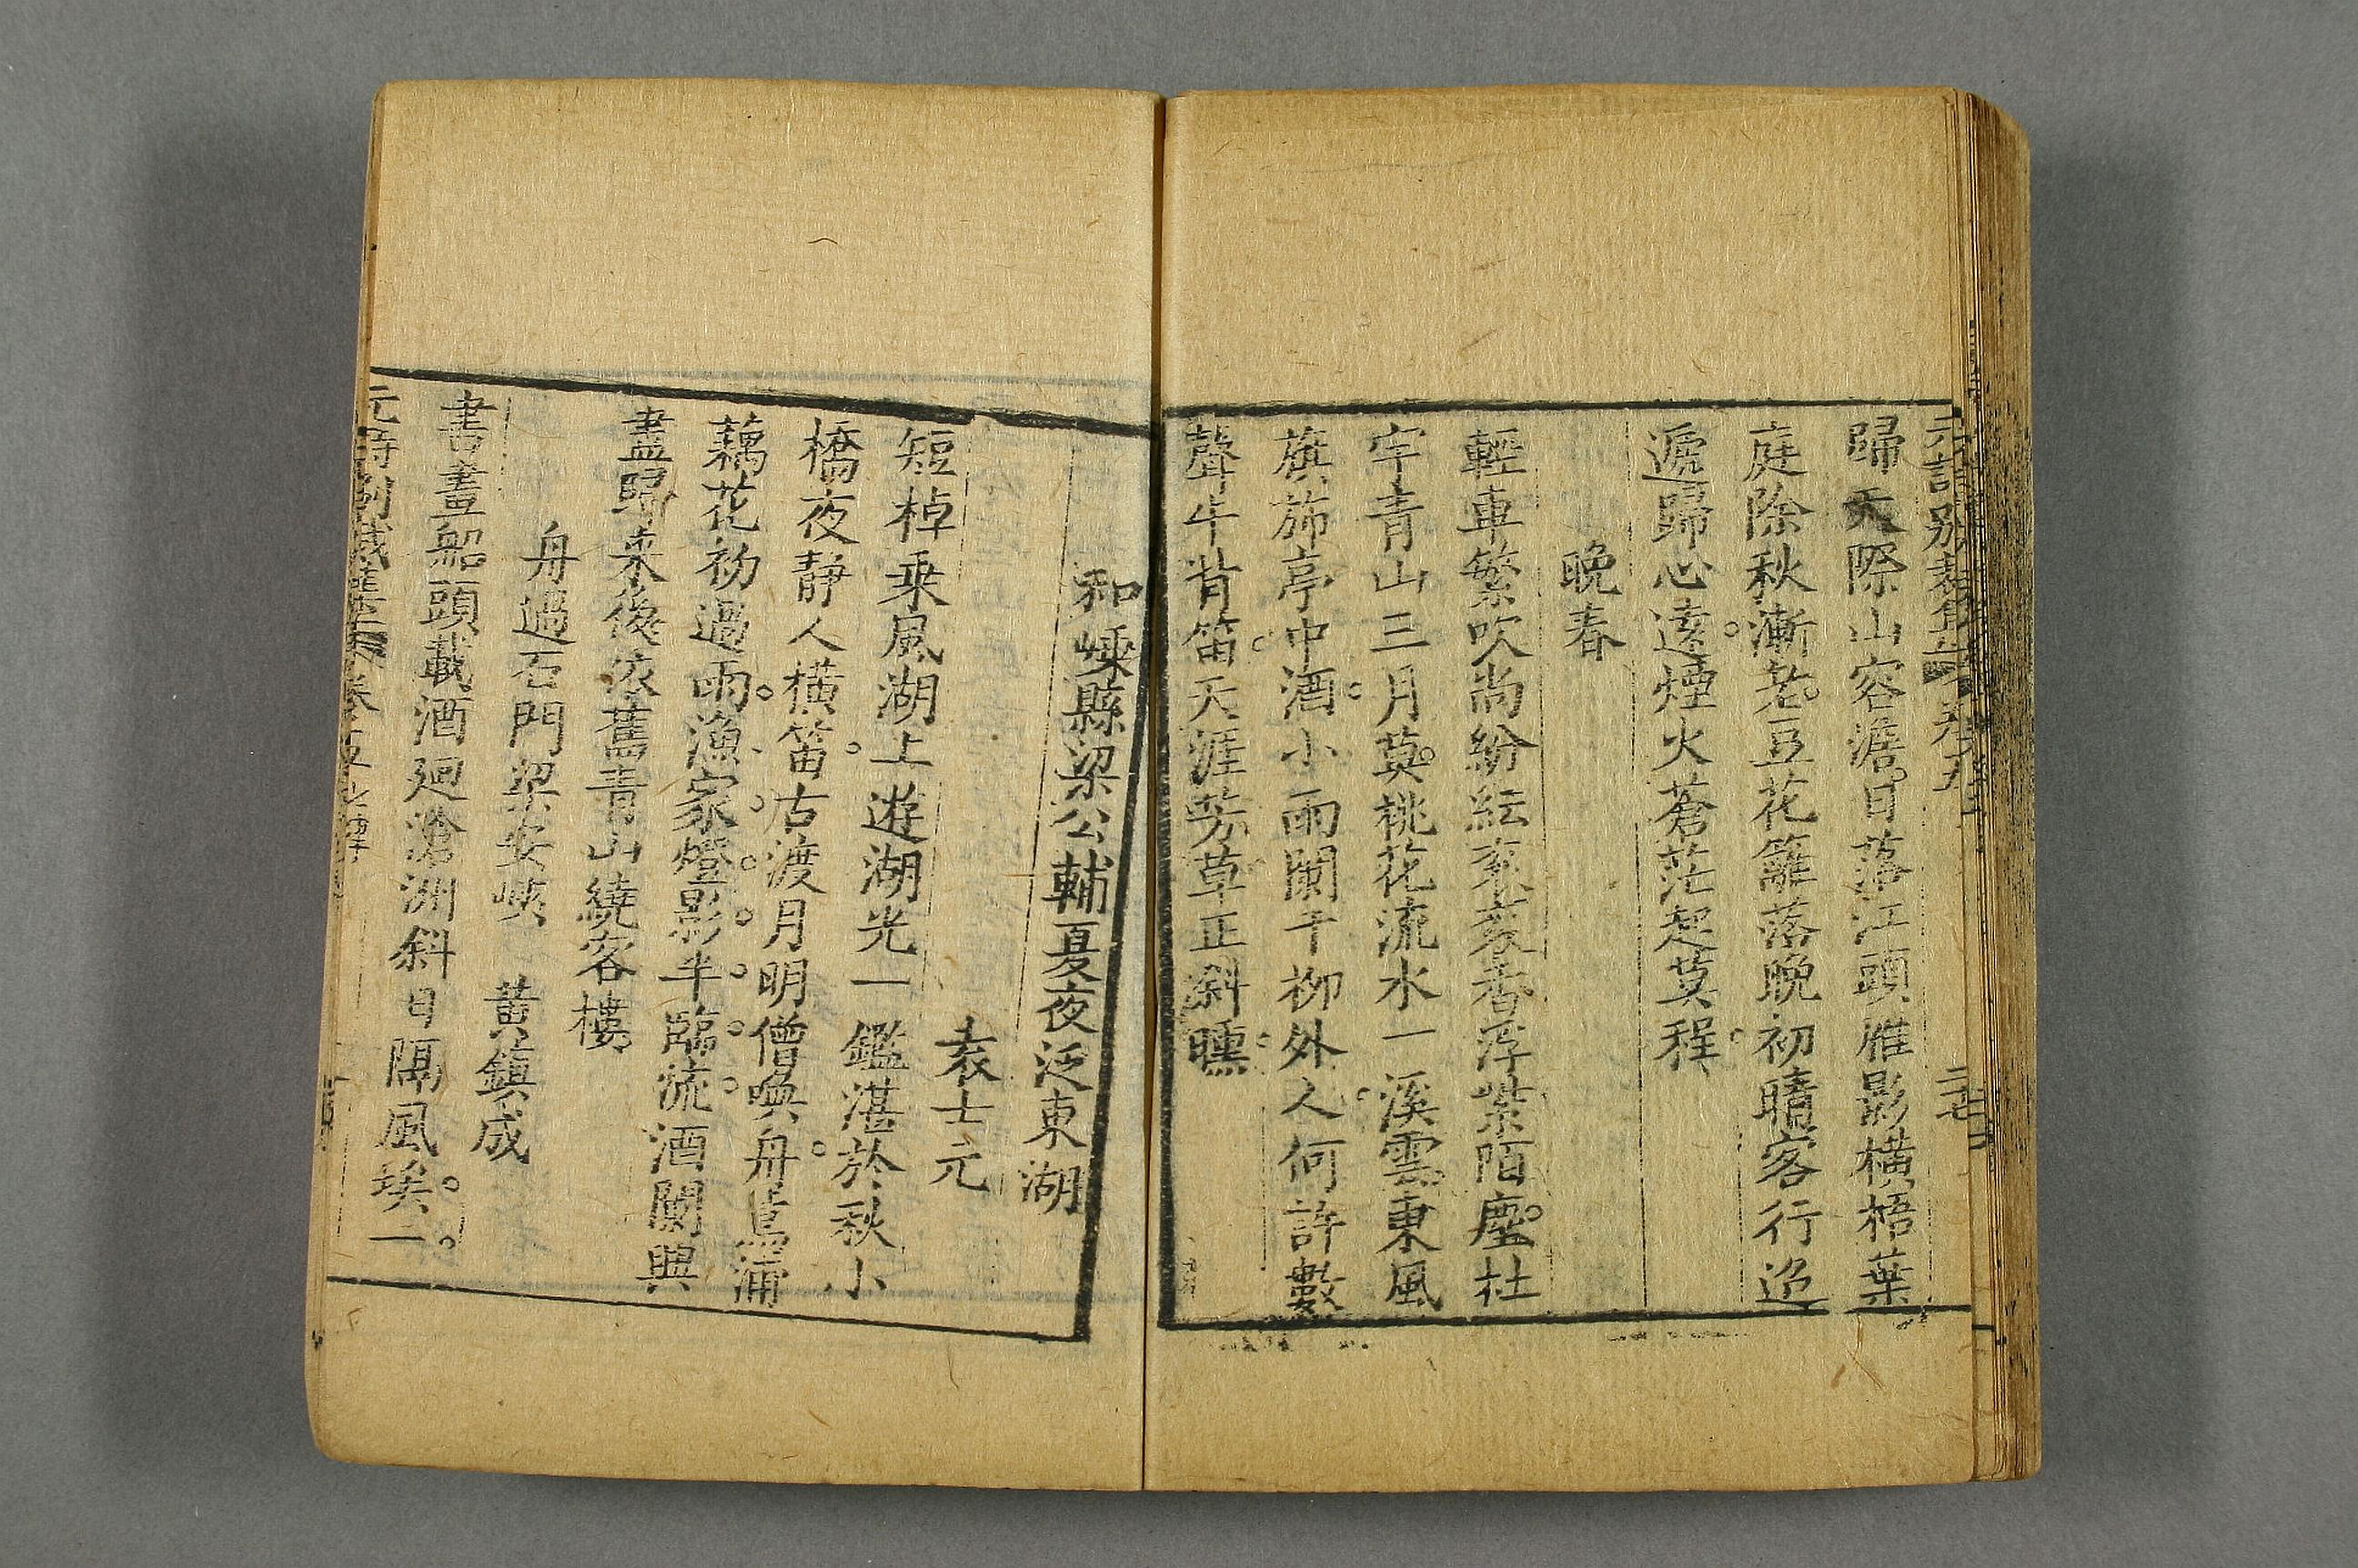 歸天際山容澹日落江頭雁影橫梧葉
庭除秋漸老豆花籬落晚初晴客行迢
遞歸心遠煙火蒼茫起莫程
晚春
輕車繁吹尚紛紜衣袂香浮紫陌塵杜
宇青山三月莫桃花流水一溪雲東風
旗旆亭中酒小雨闌干柳外人何許數
聲牛背笛天涯芳草正斜曛
和嵊縣梁公輔夏夜泛東湖
袁士元
短棹乘風湖上遊湖光一鑑湛於秋小
橋夜靜人橫笛古渡月明僧喚舟鳧浦
藕花初過雨漁家燈影半臨流酒闌興
盡歸來後依舊青山繞客樓
舟過石門梁安峽 黃鎮成
書畫船頭載酒廻滄洲斜日隔風埃一